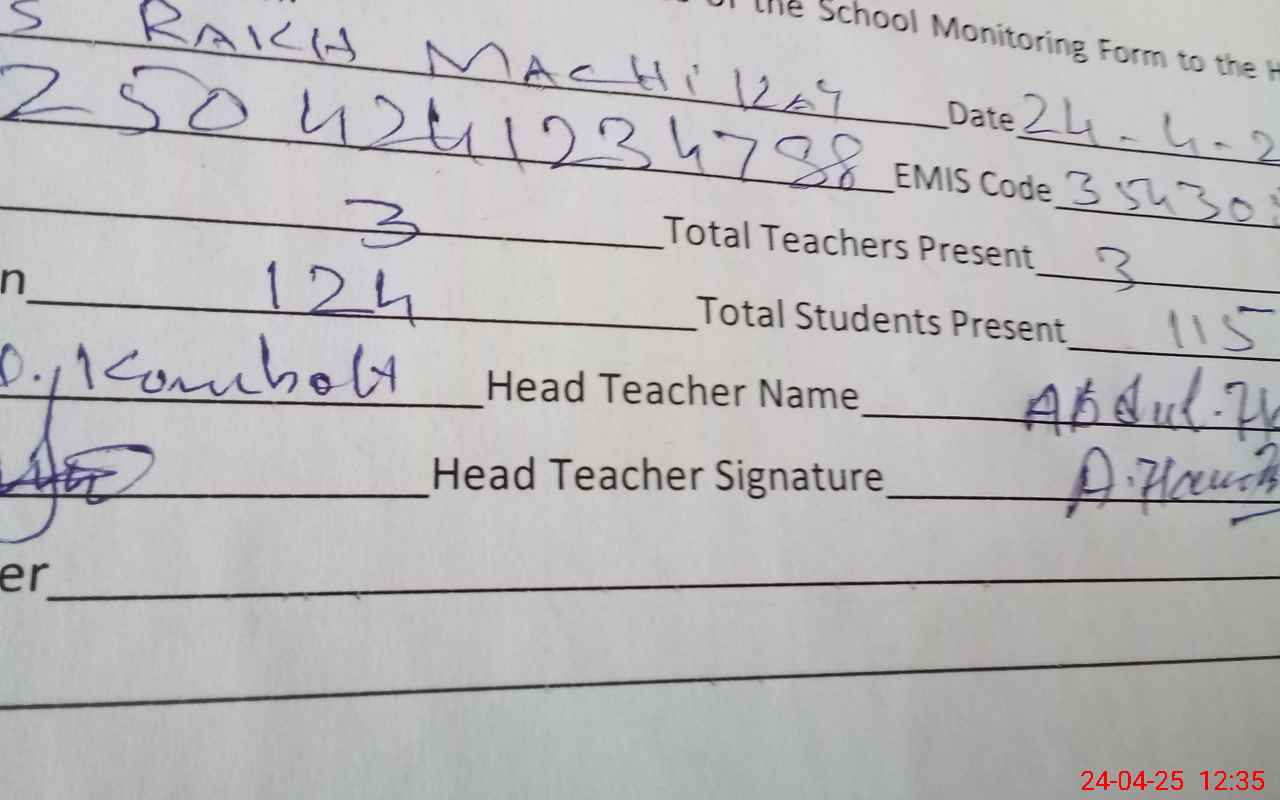 of the School Monitoring Form to the H
S RAKH MACHi Date 24-4-2
25042412347 EMIS Code 35430
3 Total Teachers Present 3
n 124 Total Students Present 115
Head Teacher Name Abdul.
Head Teacher Signature A.
er
24-04-25 12:35